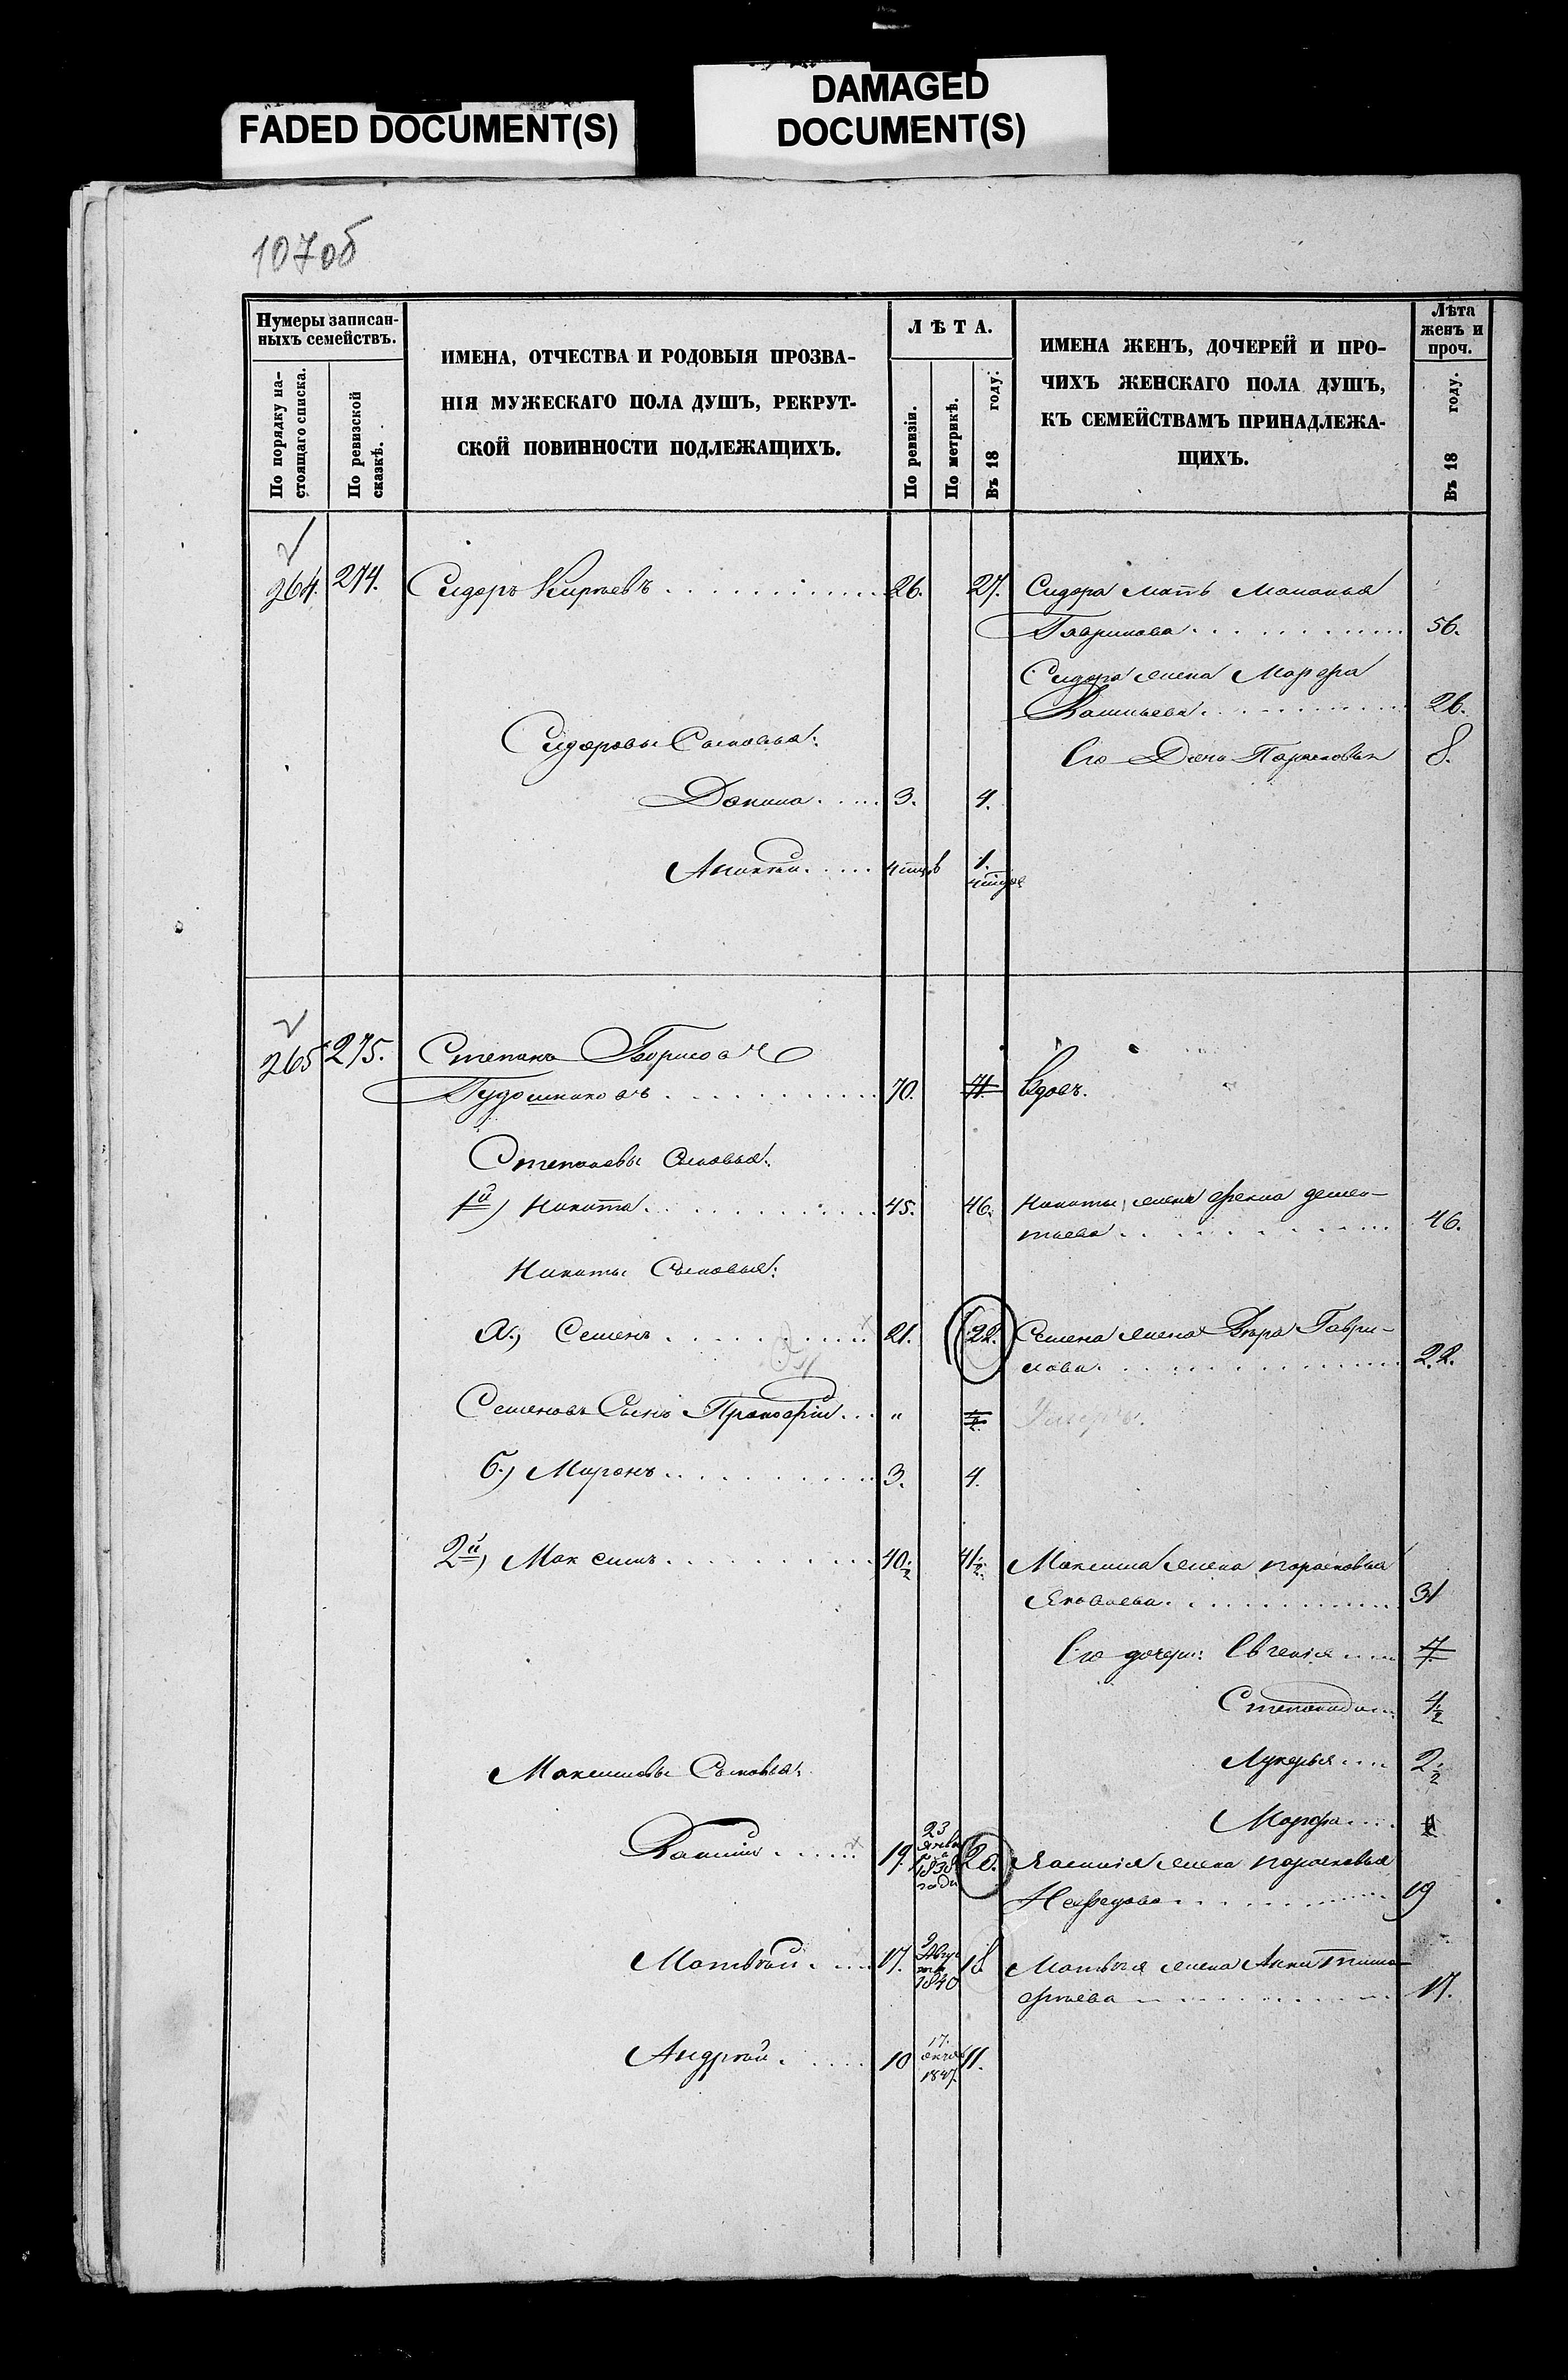 FADED DOCUMENT(S)
DAMAGED
DOCUMENT(S)
107об
Нумеры записан-
ныхъ семействъ.
По порядку на-
стоящаго списка.
По ревизской
сказкѣ.
ИМЕНА, ОТЧЕСТВА И РОДОВЫЯ ПРОЗВА-
НІЯ МУЖЕСКАГО ПОЛА ДУШЪ, РЕКРУТ-
СКОЙ ПОВИННОСТИ ПОДЛЕЖАЩИХЪ.
Л Ѣ Т А.
По ревизіи.
По метрикѣ.
Въ 18 году.
ИМЕНА ЖЕНЪ, ДОЧЕРЕЙ И ПРО-
ЧИХЪ ЖЕНСКАГО ПОЛА ДУШЪ,
КЪ СЕМЕЙСТВАМЪ ПРИНАДЛЕЖА-
ЩИХЪ.
Лѣта
женъ и
проч.
Въ 18 году.
264. 274. Сидоръ Кирѣевъ 26. 27. Сидора мать Маланья
Гаврилова 56.
Сидора жена Марфа
Васильева 26.
Сидоровы Сыновья:
Его Дочь Парасковья 8.
Данила 3. 4.
1.
265 275. Степанъ Борисовъ
Гудошниковъ 70. 71. Вдовъ.
Степановы Сыновья:
1й) Никита 45. 46. Никиты жена Фекла демен-
тьева 46.
Никиты Сыновья:
а.) Семенъ 21. 22. Семена жена Вѣра Гаври-
лова 22.
Семеновъ Сынъ Прокофій " ½ Умеръ.
б.) Миронъ 3. 4.
2й) Максимъ 40½ 41½ Максима жена парасковья
Яковлева 31
Его дочери: Евгенія 7
Степанида 4½
Лукерья 2½
Максимовы Сыновья:
Марфа
Василій 19 23 Января 1838 года 20. Василія жена парасковья
Нефедова 19
Матвѣй 17. 9 Авгус 1840 18 Матвѣя жена Анна Тимо-
фѣева 17.
Андрѣй 10 17. октяб 1847. 11.